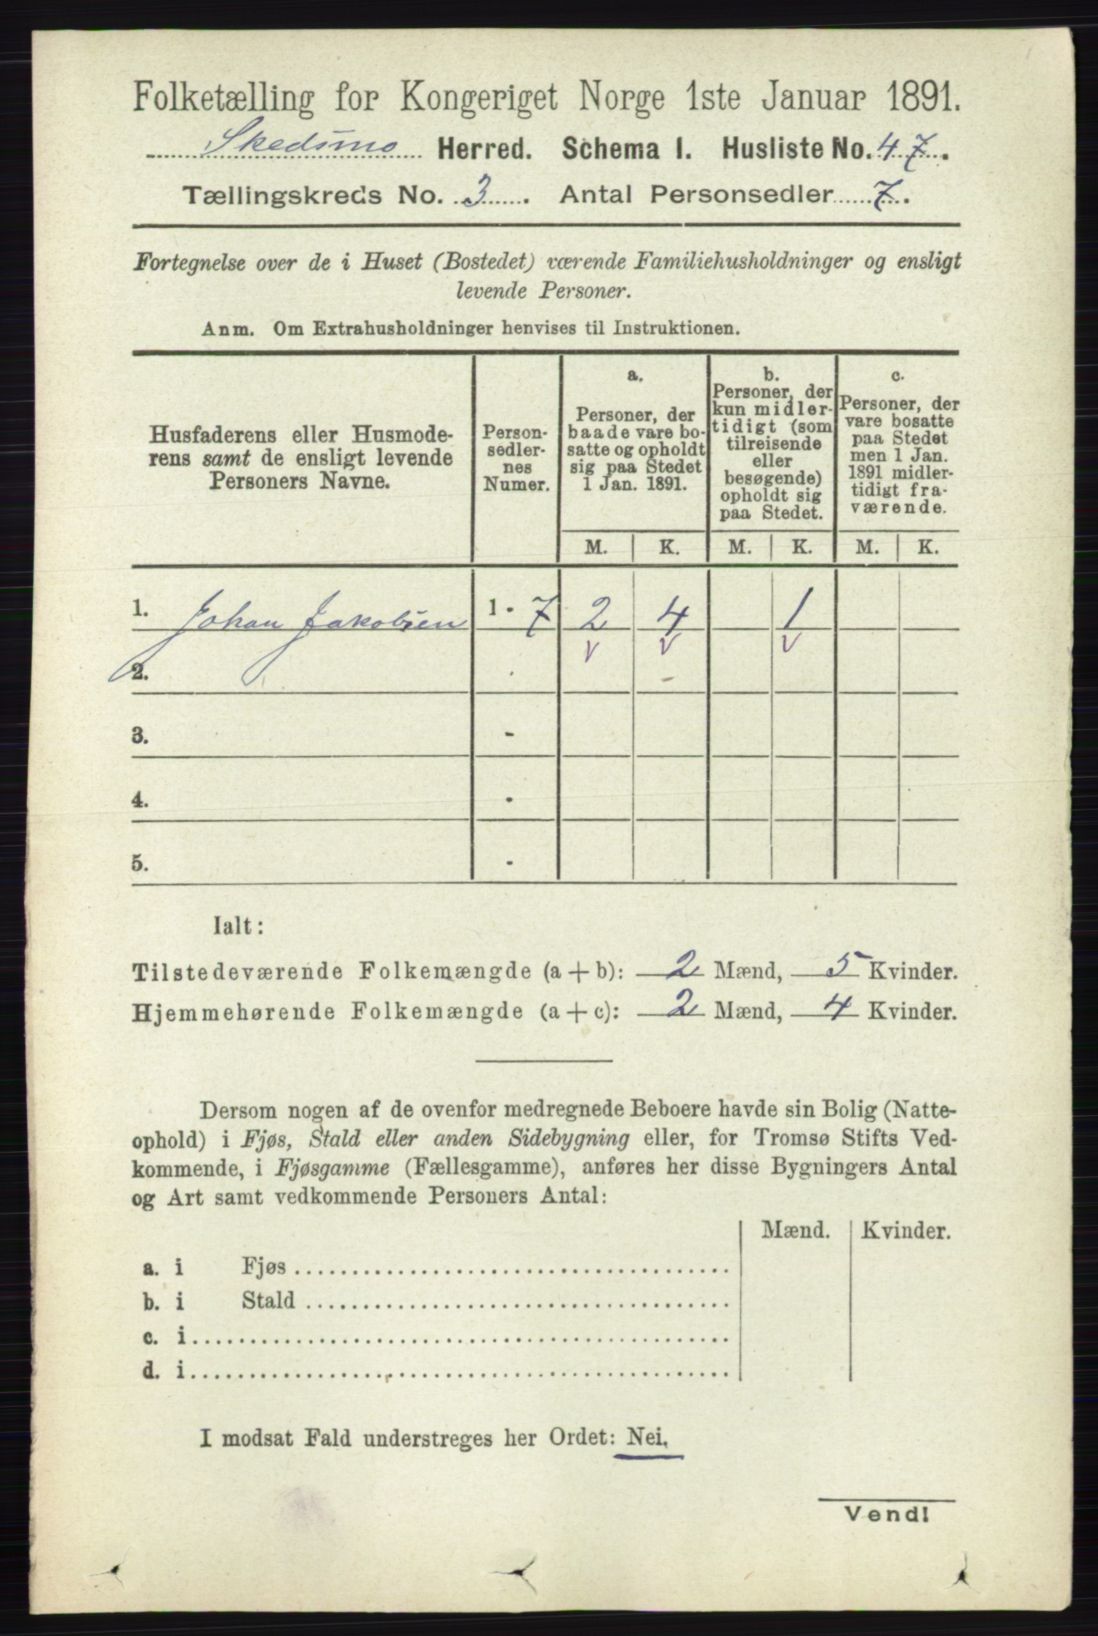 Folketælling for Kongeriget Norge 1ste Januar 1891.
Skedsmo Herred. Schema I. Husliste No. 47.
Tællingskreds No. 3. Antal Personsedler 7.
Fortegnelse over de i Huset (Bostedet) værende Familiehusholdninger og ensligt
levende Personer.
Anm. Om Extrahusholdninger henvises til Instruktionen.
Husfaderens eller Husmode-
rens samt de ensligt levende
Personers Navne.
Person-
sedler-
nes
Numer.
a.
Personer, der
baade vare bo-
satte og opholdt
sig paa Stedet
1 Jan. 1891.
b.
Personer, der
kun midler-
tidigt (som
tilreisende
eller
besøgende)
opholdt sig
paa Stedet.
c.
Personer, der
vare bosatte
paa Stedet
men 1 Jan.
1891 midler-
tidigt fra-
værende.
M. K. M. K. M. K.
1. Johan Jakobsen 1 - 7 2 4 1
v v v
2.
3. -
4. -
5. -
Ialt:
Tilstedeværende Folkemængde (a + b): 2 Mænd, 5 Kvinder.
Hjemmehørende Folkemængde (a + c): 2 Mænd, 4 Kvinder.
Dersom nogen af de ovenfor medregnede Beboere havde sin Bolig (Natte-
ophold) i Fjøs, Stald eller anden Sidebygning eller, for Tromsø Stifts Ved-
kommende, i Fjøsgamme (Fællesgamme), anføres her disse Bygningers Antal
og Art samt vedkommende Personers Antal:
Mænd. Kvinder.
a. i Fjøs
b. i Stald
c. i
d. i
I modsat Fald understreges her Ordet: Nei.
Vend!